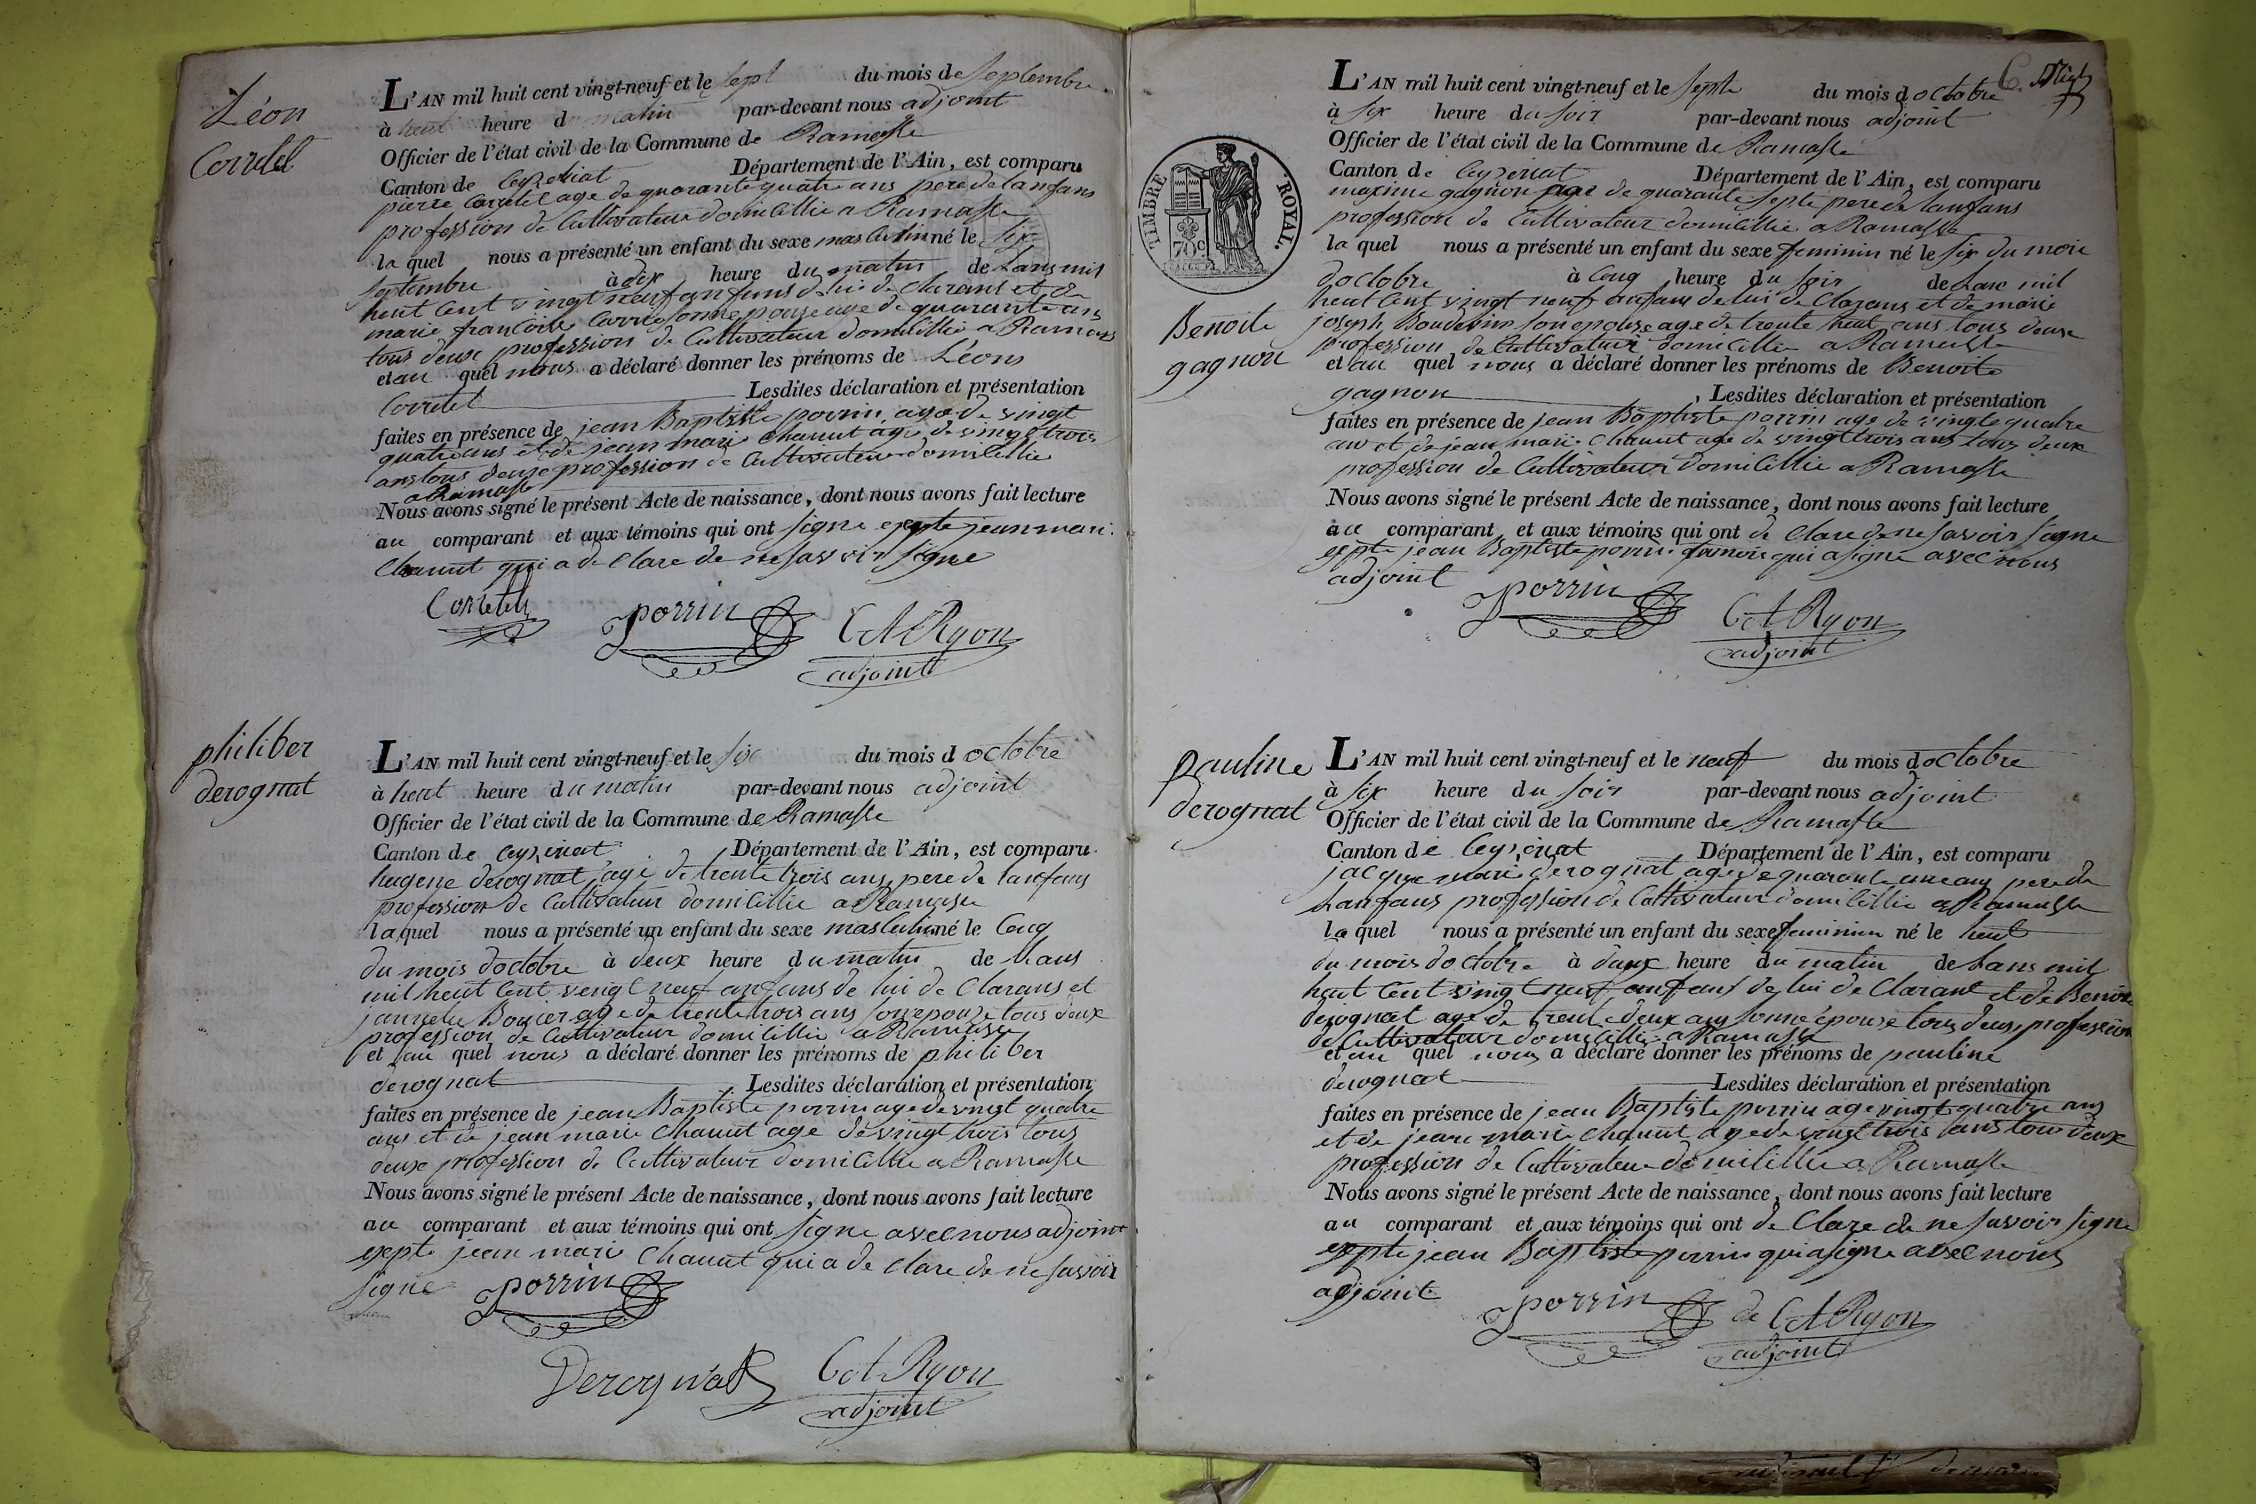 Léon
Corretel
L'AN mil huit cent vingt-neuf et le sept du mois de Septembre
à heut heure du matin par-devant nous adjoint
Officier de l'état civil de la Commune de Ramasse
Canton de Ceyzeriat Département de l'Ain, est comparu
pierre Corretel age de quarante quatre ans pere de lanfans
profession de Cultivateur domicillie a Ramasse
la quel nous a présenté un enfant du sexe masculin né le six
septembre à dix heure du matin de Lans mil
heut Cent vingt neuf anfans de lui de Clarans et de
marie francoise son epouse age de quarante ans
tous deux profession de Cultivateur domicillie a Ramasse
et au quel nous a déclaré donner les prénoms de Léons
Corretel Lesdites déclaration et présentation
faites en présence de jean Baptiste porrin age de vingt
quatre ans et de jean marie Chanut age de vingt trois
ans tous deux profession de Cultivateur domicillie
a Ramasse
Nous avons signé le présent Acte de naissance, dont nous avons fait lecture
au comparant et aux témoins qui ont signe exepte jean mari
Chanut qui a de Clare de ne savoir signe
Corretel porrin Cot Ryon
adjoint
philiber
derognat
L'AN mil huit cent vingt-neuf et le six du mois d octobre
à heut heure du matin par-devant nous adjoint
Officier de l'état civil de la Commune de Ramasse
Canton de Ceyzeriat Département de l'Ain, est comparu
hugene derognat age de trente trois ans pere de lanfans
profession de Cultivateur domicillie a Ramasse
la quel nous a présenté un enfant du sexe masculin né le Cinq
du mois doctobre à deux heure du matin de Lans
mil heut Cent vengt neuf anfans de lui de Clarans et
jannete Bouier age de trente trois ans son epouze tous deux
profession de Cultivateur domicillie a Ramasse
et au quel nous a déclaré donner les prénoms de philiber
derognat Lesdites déclaration et présentation
faites en présence de jean Baptiste porrin age de vingt quatre
ans et de jean marie Chanut age de vingt trois tous
deux profession de Cultivateur domicillie a Ramasse
Nous avons signé le présent Acte de naissance, dont nous avons fait lecture
au comparant et aux témoins qui ont signe avec nous adjoint
exepte jean mari Chanut qui a de Clare de ne savoir
signe porrin
Derognat Cot Ryon
adjoint
C.
TIMBRE ROYAL.
70c
Benoite
gagnon
L'AN mil huit cent vingt-neuf et le septe du mois d octobre
à six heure du soir par-devant nous adjoint
Officier de l'état civil de la Commune de Ramasse
Canton de Ceyzeriat Département de l'Ain, est comparu
maxime gagnon age de quarante septe pere de lanfans
profession de Cultivateur domicillie a Ramasse
la quel nous a présenté un enfant du sexe feminin né le six du mois
doctobre à Cinq heure du soir de Lans mil
heut Cent vingt neuf anfans de lui de Clarans et de marie
joseph Boudevin son epouse age de trente heut ans tous deux
profession de Cultivateur domicillie a Ramasse
et au quel nous a déclaré donner les prénoms de Benoite
gagnon, Lesdites déclaration et présentation
faites en présence de jean Baptiste porrin age de vingte quatre
ans et de jean marie Chanut age de vingt trois ans tous deux
profession de Cultivateur domicillie a Ramasse
Nous avons signé le présent Acte de naissance, dont nous avons fait lecture
au comparant et aux témoins qui ont de Clare de ne savoir signe
exepte jean Baptiste porrin qui a signe avec nous
adjoint porrin Cot Ryon
adjoint
pauline
derognat
L'AN mil huit cent vingt-neuf et le neuf du mois d octobre
à six heure du soir par-devant nous adjoint
Officier de l'état civil de la Commune de Ramasse
Canton de Ceyzeriat Département de l'Ain, est comparu
jacque marie derognat age de quarante une ans pere de
lanfans profession de Cultivateur domicillie a Ramasse
la quel nous a présenté un enfant du sexe feminin né le heut
du mois doctobre à deux heure du matin de Lans mil
heut Cent vingt neuf anfans de lui de Clarant et de Benoite
derognat age de trente deux ans sonne epouze tous deux profession
de Cultivateur domicillie a Ramasse
et au quel nous a déclaré donner les prénoms de pauline
derognat Lesdites déclaration et présentation
faites en présence de jean Baptiste porrin age vingt quatre ans
et de jean marie Chanut age de vingt trois ans tous deux
profession de Cultivateur domicillie a Ramasse
Nous avons signé le présent Acte de naissance, dont nous avons fait lecture
au comparant et aux témoins qui ont de Clare de ne savoir signe
exepte jean Baptiste porrin qui a signe avec nous
adjoint porrin de Cot Ryon
adjoint